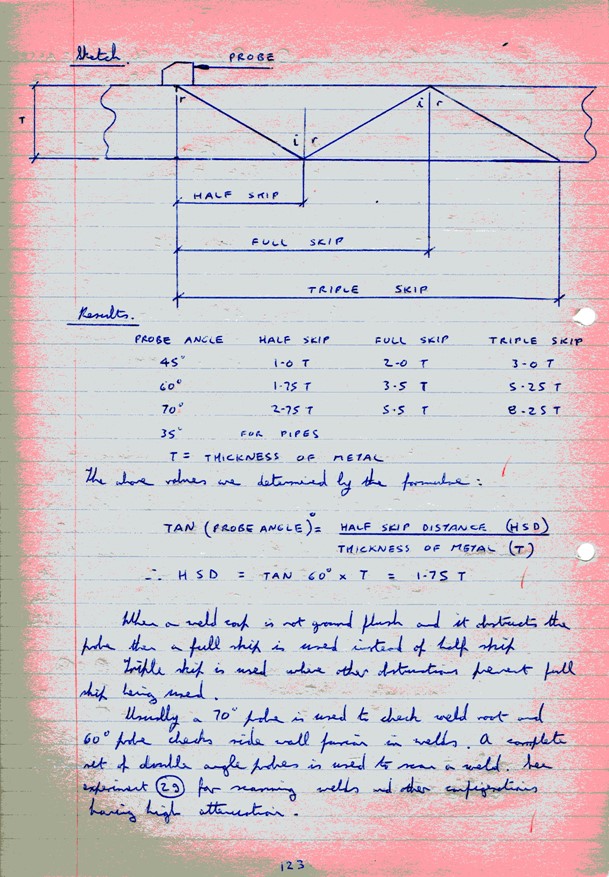 Sketch.
PROBE
T
r
i r
i r
HALF SKIP
FULL SKIP
TRIPLE SKIP
Results.
PROBE ANGLE HALF SKIP FULL SKIP TRIPLE SKIP
45° 1·0 T 2·0 T 3·0 T
60° 1·75 T 3·5 T 5·25 T
70° 2·75 T 5·5 T 8·25 T
35° FOR PIPES
T = THICKNESS OF METAL
The above values are determined by the formulae :
TAN (PROBE ANGLE)° = HALF SKIP DISTANCE (HSD)
THICKNESS OF METAL (T)
∴ HSD = TAN 60° x T = 1·75 T
When a weld cap is not ground flush and it obstructs the
probe then a full skip is used instead of half skip
Triple skip is used where other obstructions prevent full
skip being used.
Usually a 70° probe is used to check weld root and
60° probe checks side wall fusion in welds. A complete
set of double angle probes is used to scan a weld. See
experiment 29 for scanning welds and other configurations
having high attenuation.
123